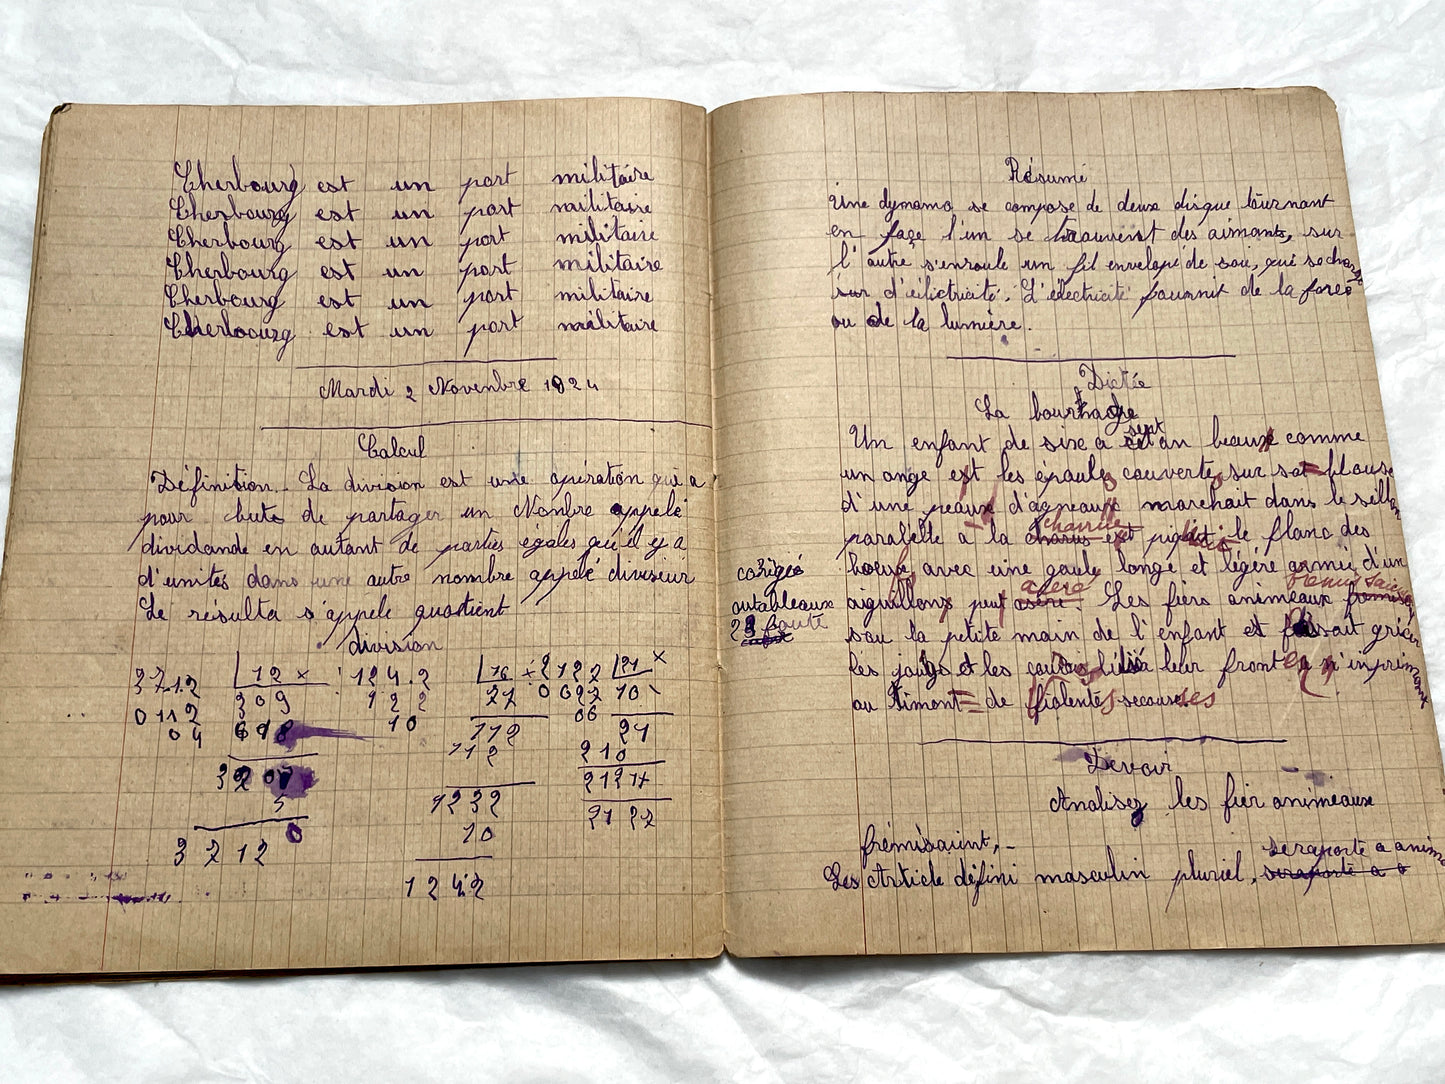 Cherbourg est un port militaire
Cherbourg est un port militaire
Cherbourg est un port militaire
Cherbourg est un port militaire
Cherbourg est un port militaire
Cherboourg est un port militaire
Mardi 2 Novenbre 1924
Calcul
Définition. La division est une opération qui a
pour bute de partager un Nonbre appelé
dividande en autant de parties égales qu'il y a
d'unités dans une autre nombre appelé diviseur
Le résulta s'appele quotient
division
3712 12 x 124.2 16 x 2122 21 x
0112 309 122 27 0 0 22 10
04 618 10 112 06 21
112 210
3207 2121
5 1232 2122
0 10
3212
1242
Résumé
Une dynamo se compose de deux disque tournant
en façe l'un se trouvent des aimants, sur
l'autre s'enroule un fil envelopé de soie, qui se charge
sur d'éléctricité. L'électricité fournit de la force
ou de la lumière.
Dictée
La bourhage
sept
Un enfant de six a set an beaux comme
un ange est les épaules couvertes sur sa blouse
d'une peaux d'agneaux marchait dans le sillon
charrue
parallèle a la charus est piquait le flanc des
corigés
boeufs avec une gaule longe et légére armée d'un
acéré
frémissaient
autableaux
aiguillons peut asére. Les fiers animeaux
23 faute
sou la petite main de l'enfant et faisait gricer
les jougs et les couroies liés à leur front en n'inprimant
au timont de violentes secousses
Devoir
Analisez les fier animeaux
frémisaint,-
seraporte a anime
Les Article défini masculin pluriel, seraporte a